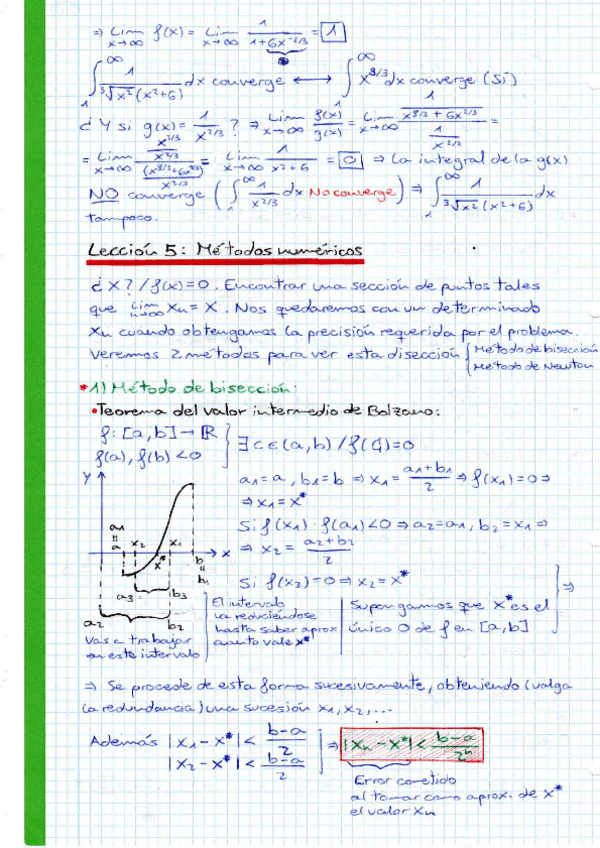 ⇒ Lim x→∞ f(x) = Lim x→∞ 1/(1+6x^-2/3) = 1
∫₁^∞ 1/(³√x² (x²+6)) dx converge ⟷ ∫₁^∞ x^8/3 dx converge (Sí)
¿Y si g(x) = 1/x^2/3 ? ⇒ Lim x→∞ f(x)/g(x) = Lim x→∞ (1/(x^8/3 + 6x^2/3))/(1/x^2/3) =
= Lim x→∞ = Lim x→∞ 1/(x²+6) = 0 ⇒ La integral de la g(x)
NO converge (∫₁^∞ 1/x^2/3 dx No converge) ⇒ ∫₁^∞ 1/(³√x² (x²+6)) dx
tampoco.
Lección 5: Métodos numéricos
¿X? / f(x)=0. Encontrar una sección de puntos tales
que Lim n→∞ Xn = X. Nos quedaremos con un determinado
Xn cuando obtengamos la precisión requerida por el problema.
Veremos 2 métodos para ver esta disección { Método de bisección
Método de Newton
* 1) Método de bisección:
• Teorema del valor intermedio de Bolzano:
f: [a,b] → ℝ
f(a), f(b) < 0 } ∃ c ∈ (a,b) / f(c) = 0
a1 = a, b1 = b ⇒ x1 = (a1+b1)/2 ⇒ f(x1) = 0 ⇒
⇒ x1 = x*
Si f(x1) · f(a1) < 0 ⇒ a2 = a1, b2 = x1 ⇒
⇒ x2 = (a2+b2)/2
Si f(x2) = 0 ⇒ x2 = x*
Y
a1 = a
x2
x*
x1
x
b = b1
a3
b3
a2
b2
Vas a trabajar
en este intervalo
El intervalo
va reduciéndose
hasta saber aprox
cuánto vale x*
Supongamos que x* es el
único 0 de f en [a,b] ⇒
⇒ Se procede de esta forma sucesivamente, obteniendo (valga
la redundancia) una sucesión x1, x2, ...
Además |x1 - x*| < (b-a)/2
|x2 - x*| < (b-a)/2
⇒ |xn - x*| < (b-a)/2^n
Error cometido
al tomar como aprox. de x*
el valor Xn